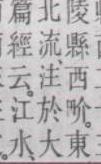 陵縣西東
北流、注於大
篇經云。江水、